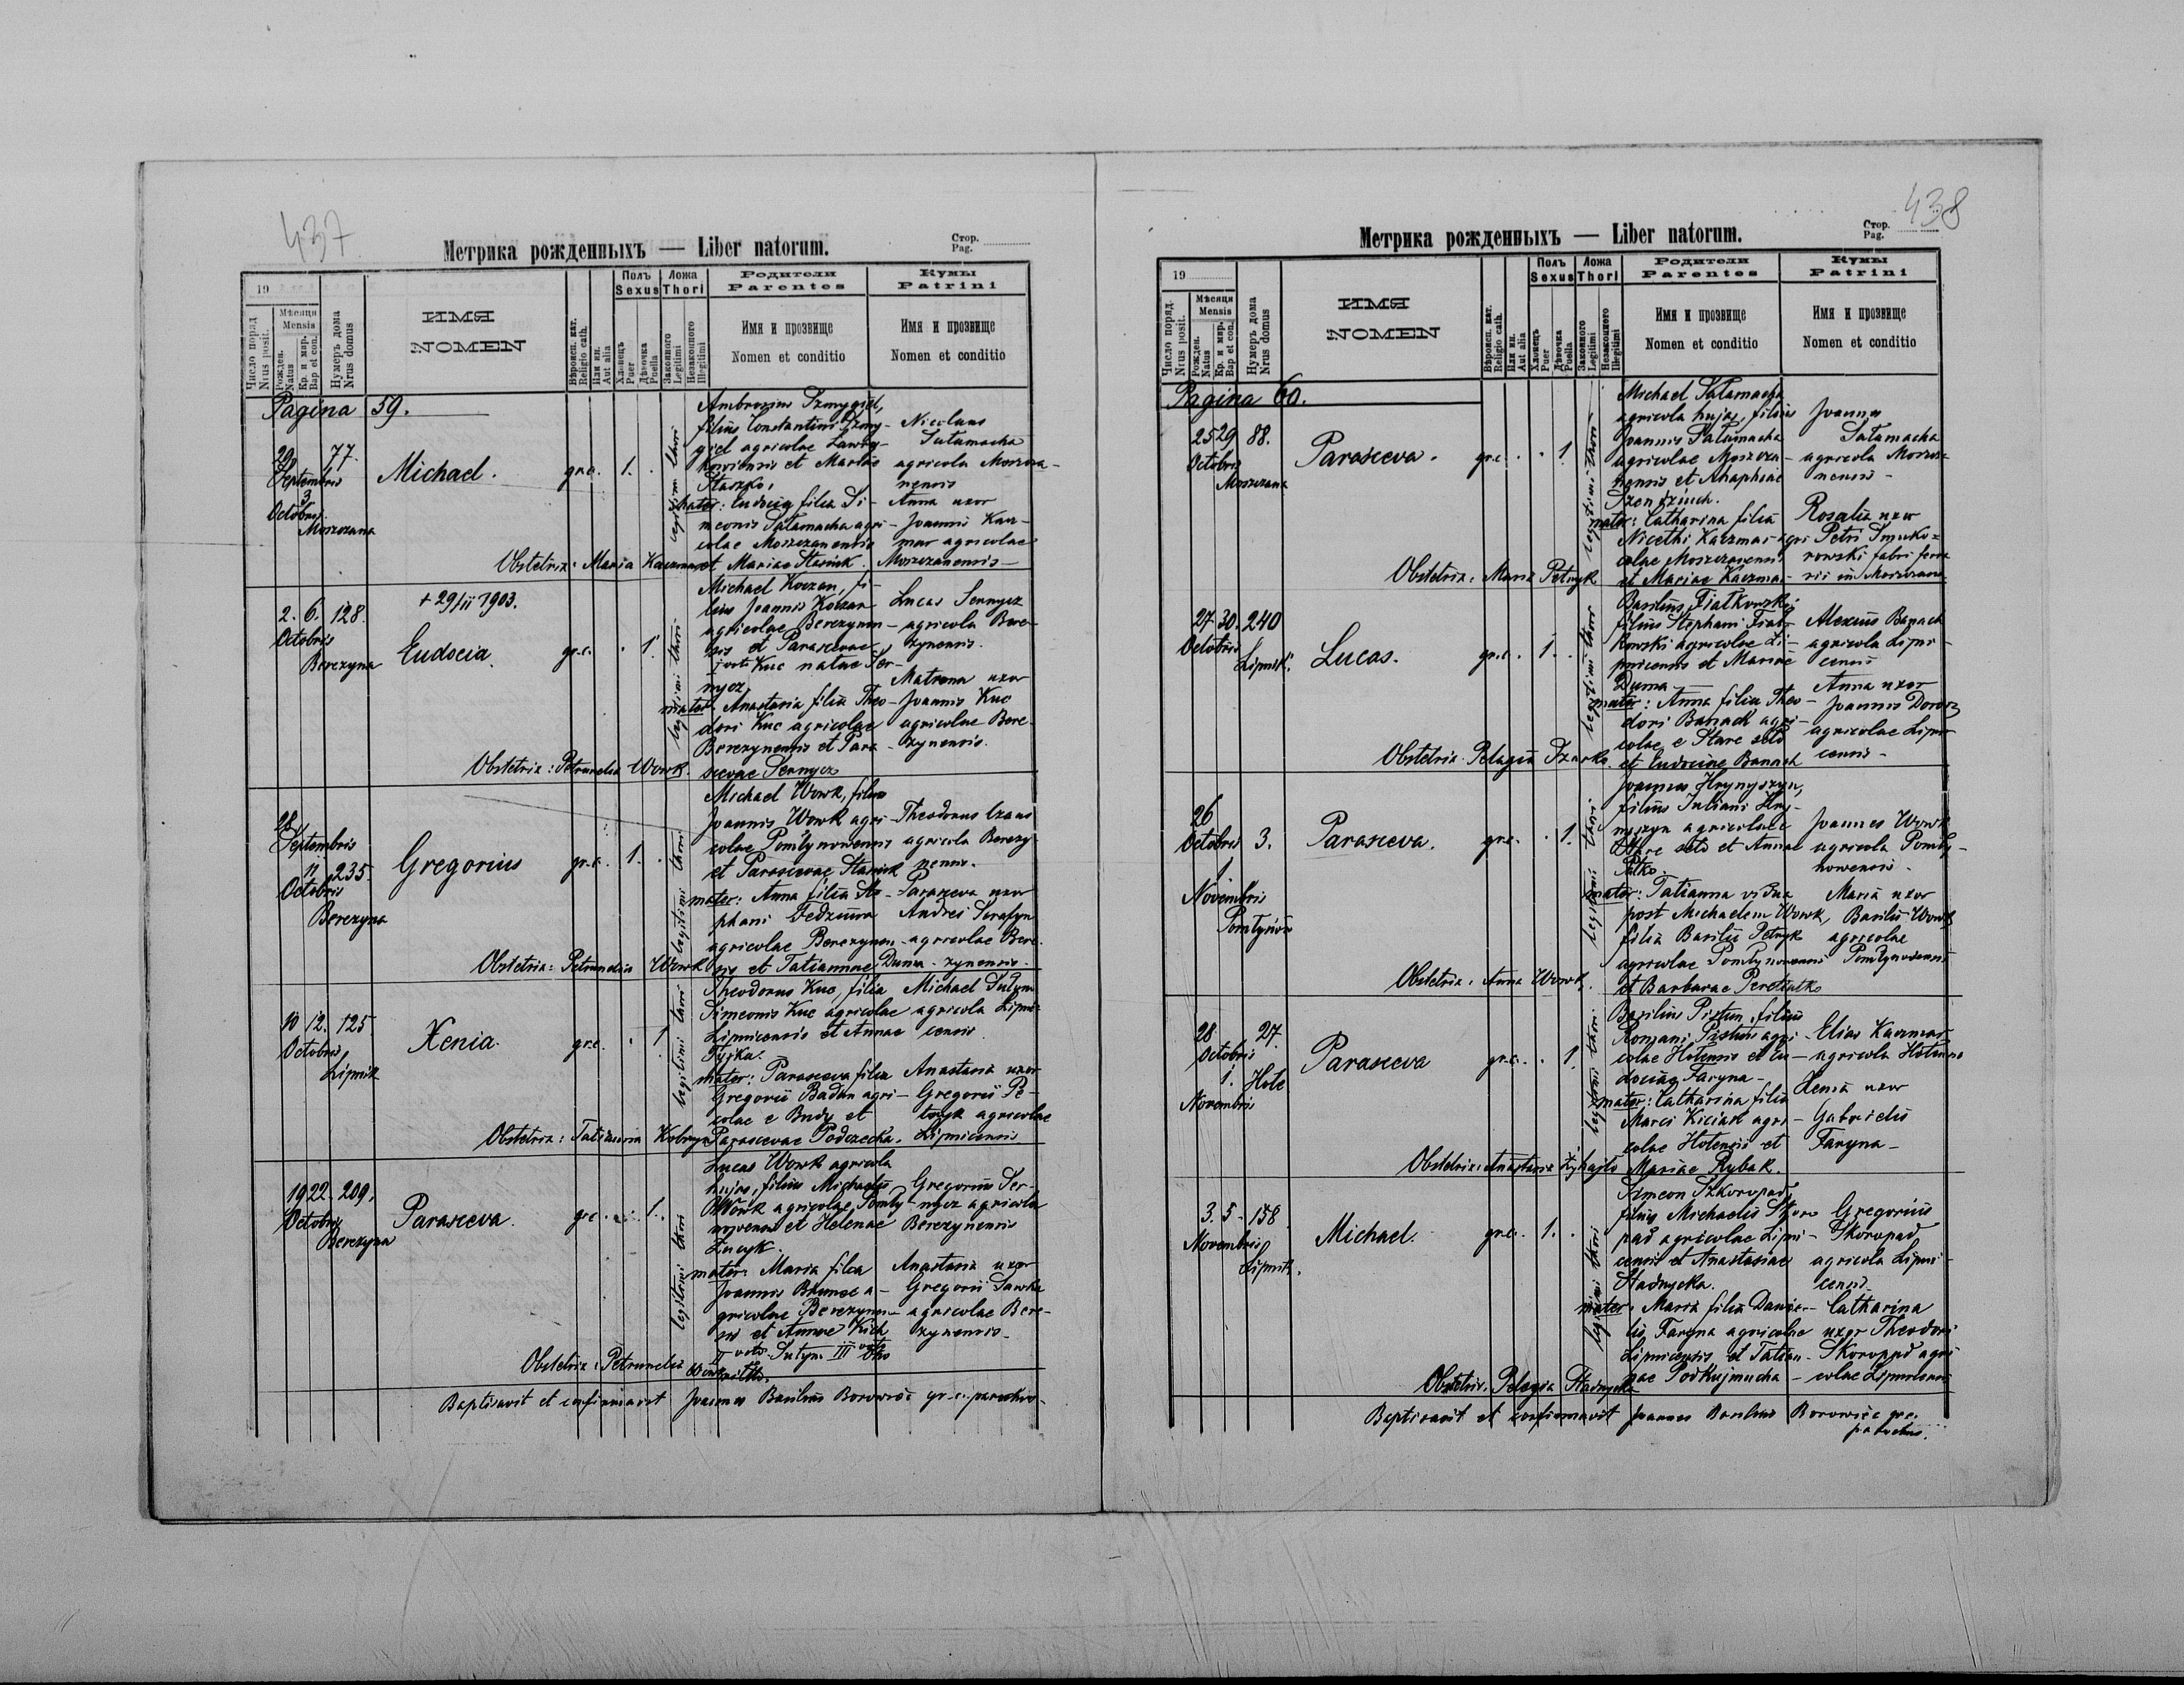 437
Метрика рожденныхъ — Liber natorum.
Стор.
Pag.
19
Число поряд.
Nrus posit.
Мѣсяця
Mensis
Рожден.
Natus
Кр. и мир.
Bap et con.
Нумеръ дома
Nrus domus
ИМЯ
NOMEN
Вѣроисп. кат.
Religio cath.
Или ин.
Aut alia
Полъ
Sexus
Хлопець
Puer
Дѣвочка
Puella
Ложа
Thori
Законного
Legitimi
Незаконного
Illegitimi
Родители
Parentes
Имя и прозвище
Nomen et conditio
Кумы
Patrini
Имя и прозвище
Nomen et conditio
Pagina 59.
29
Septembris
3
Octobris
77.
Moszczana
Michael.
gr.c. 1.
legitimi thori
Ambrosius
filius Constantini
agricolae
et Mariae
Staszko,
mater: Eudocia filia Si-
meonis Sałamacha agri-
colae Moszczanensis
et Mariae Stasiuk.
Nicolaus
Sałamacha
agricola Moszcza-
nensis
Anna uxor
Joannis Kacz-
mar agricolae
Moszczanensis
Obstetrix: Maria Kaczmar
2. 6. 128.
Octobris
Berezyna
+ 29/II 1903.
Eudocia.
gr.c. 1.
legitimi thori
Michael Koczan, fi-
lius Joannis Koczan
agricolae Berezynen-
sis et Parascevae
Kuc natae Ser-
nycz
mater: Anastasia filia Theo-
dori Kuc agricolae
Berezynensis et Para-
scevae Sernycz
Lucas Sernycz
agricola Bere-
zynensis.
Matrona uxor
Joannis Kuc
agricolae Bere-
zynensis.
Obstetrix: Petrunela Wowk.
28
Septembris
11
Octobris
235.
Berezyna
Gregorius
gr.c. 1.
legitimi thori
Michael Wowk, filius
Joannis Wowk agri-
colae Pomłynowensis
et Parascevae Stasiuk
mater: Anna filia Ste-
phani
agricolae Berezynen-
sis et Tatiannae Duma.
Theodorus
agricola Berezy-
nensis.
Parasceva uxor
Andrei Serafyn
agricolae Bere-
zynensis.
Obstetrix: Petrunela Wowk
10 12. 125
Octobris
Lipnik
Xenia.
gr.c. 1
legitimi thori
Theodorus Kuc, filia
Simeonis Kuc agricolae
Lipnicensis et Annae
mater: Parasceva filia
Gregorii Badan agri-
colae e Budy et
Parascevae Podczecka.
Michael
agricola Lipni-
censis
Anastasia uxor
Gregorii Pe-
agricolae
Lipnicensis
Obstetrix: Tatianna
19 22. 209.
Octobris
Berezyna
Parasceva.
gr.c. 1.
legitimi thori
Lucas Wowk agricola
hujas, filius Michaelis
Wowk agricolae Pomły-
nowensis et Helenae
mater: Maria filia
Joannis a-
gricolae Berezynen-
sis et Annae Kich
II voto Sutyn III voto
Gregorius Ser-
nycz agricola
Berezynensis
Anastasia uxor
Gregorii Sawka
agricolae Bere-
zynensis.
Obstetrix: Petrunela
Baptisavit et confirmavit Joannes Basilius Borowiec gr. c. parochus.
438
Метрика рожденныхъ — Liber natorum.
Стор.
Pag.
19
Число поряд.
Nrus posit.
Мѣсяця
Mensis
Рожден.
Natus
Кр. и мир.
Bap et con.
Нумеръ дома
Nrus domus
ИМЯ
NOMEN
Вѣроисп. кат.
Religio cath.
Или ин.
Aut alia
Полъ
Sexus
Хлопець
Puer
Дѣвочка
Puella
Ложа
Thori
Законного
Legitimi
Незаконного
Illegitimi
Родители
Parentes
Имя и прозвище
Nomen et conditio
Кумы
Patrini
Имя и прозвище
Nomen et conditio
Pagina 60.
25 29 88.
Octobris
Moszczana
Parasceva.
gr.c. 1.
legitimi thori
Michael Sałamacha
agricola hujas, filius
Joannis Sałamacha
agricolae Moszcza-
nensis et Ahaphiae
mater: Catharina filia
Nicethi Kaczmar agri-
colae Moszczanensis
et Mariae Kaczmar
Joannes
Sałamacha
agricola Moszcza-
nensis
Rosalia uxor
Petri
rowski fabri ferra-
rii in Moszczana
Obstetrix: Maria Petryk
27 30. 240
Octobris
Lipnik.
Lucas.
gr.c. 1.
legitimi thori
Basilius Fiałkowski,
filius Stephani Fiał-
kowski agricolae Li-
pnicensis et Mariae
Duma
mater: Anna filia Theo-
dori Banach agri-
colae e Stare seło
et Eudociae Banach
Alexius Banach
agricola Lipni-
censis
Anna uxor
Joannis
agricolae Lipni-
censis
Obstetrix: Pelagia
26
Octobris
1
Novembris
3.
Pomłynów
Parasceva.
gr.c. 1.
legitimi thori
Joannes Hrynyszyn,
filius Juliani Hry-
nyszyn agricolae
Stare seło et Annae
mater: Tatianna vidua
post Michaelem Wowk,
filia Basilii Petryk
agricolae Pomłynowensis
et Barbarae Peretiatko
Joannes Wowk
agricola Pomły-
nowensis.
Maria uxor
Basilii Wowk
agricolae
Pomłynowensis
Obstetrix: Anna Wowk.
28
Octobris
1.
Novembris
27.
Hole
Parasceva
gr.c. 1.
legitimi thori
Basilius Pistun, filius
Romani Pistun agri-
colae Holensis et Eu-
dociae Faryna
mater: Catharina filia
Marci Kiciak agri-
colae Holensis et
Mariae Rybak.
Elias Kaczmar
agricola Holensis
Xenia uxor
Gabrielis
Faryna
Obstetrix: Anastasia
3. 5. 158
Novembris
Lipnik.
Michael.
gr.c. 1.
legitimi thori
Simeon Skoropad,
filius Michaelis Skoro-
pad agricolae Lipni-
censis et Anastasiae
Stadnycka.
mater: Maria filia Danie-
lis Faryna agricolae
Lipnicensis et Tatian-
nae Podkujmucha
Gregorius
Skoropad
agricola Lipni-
censis.
Catharina
uxor Theodori
Skoropad agri-
colae Lipnicensis
Obstetrix: Pelagia Stadnycka
Baptisavit et confirmavit Joannes Basilius Borowiec gr.c.
parochus.